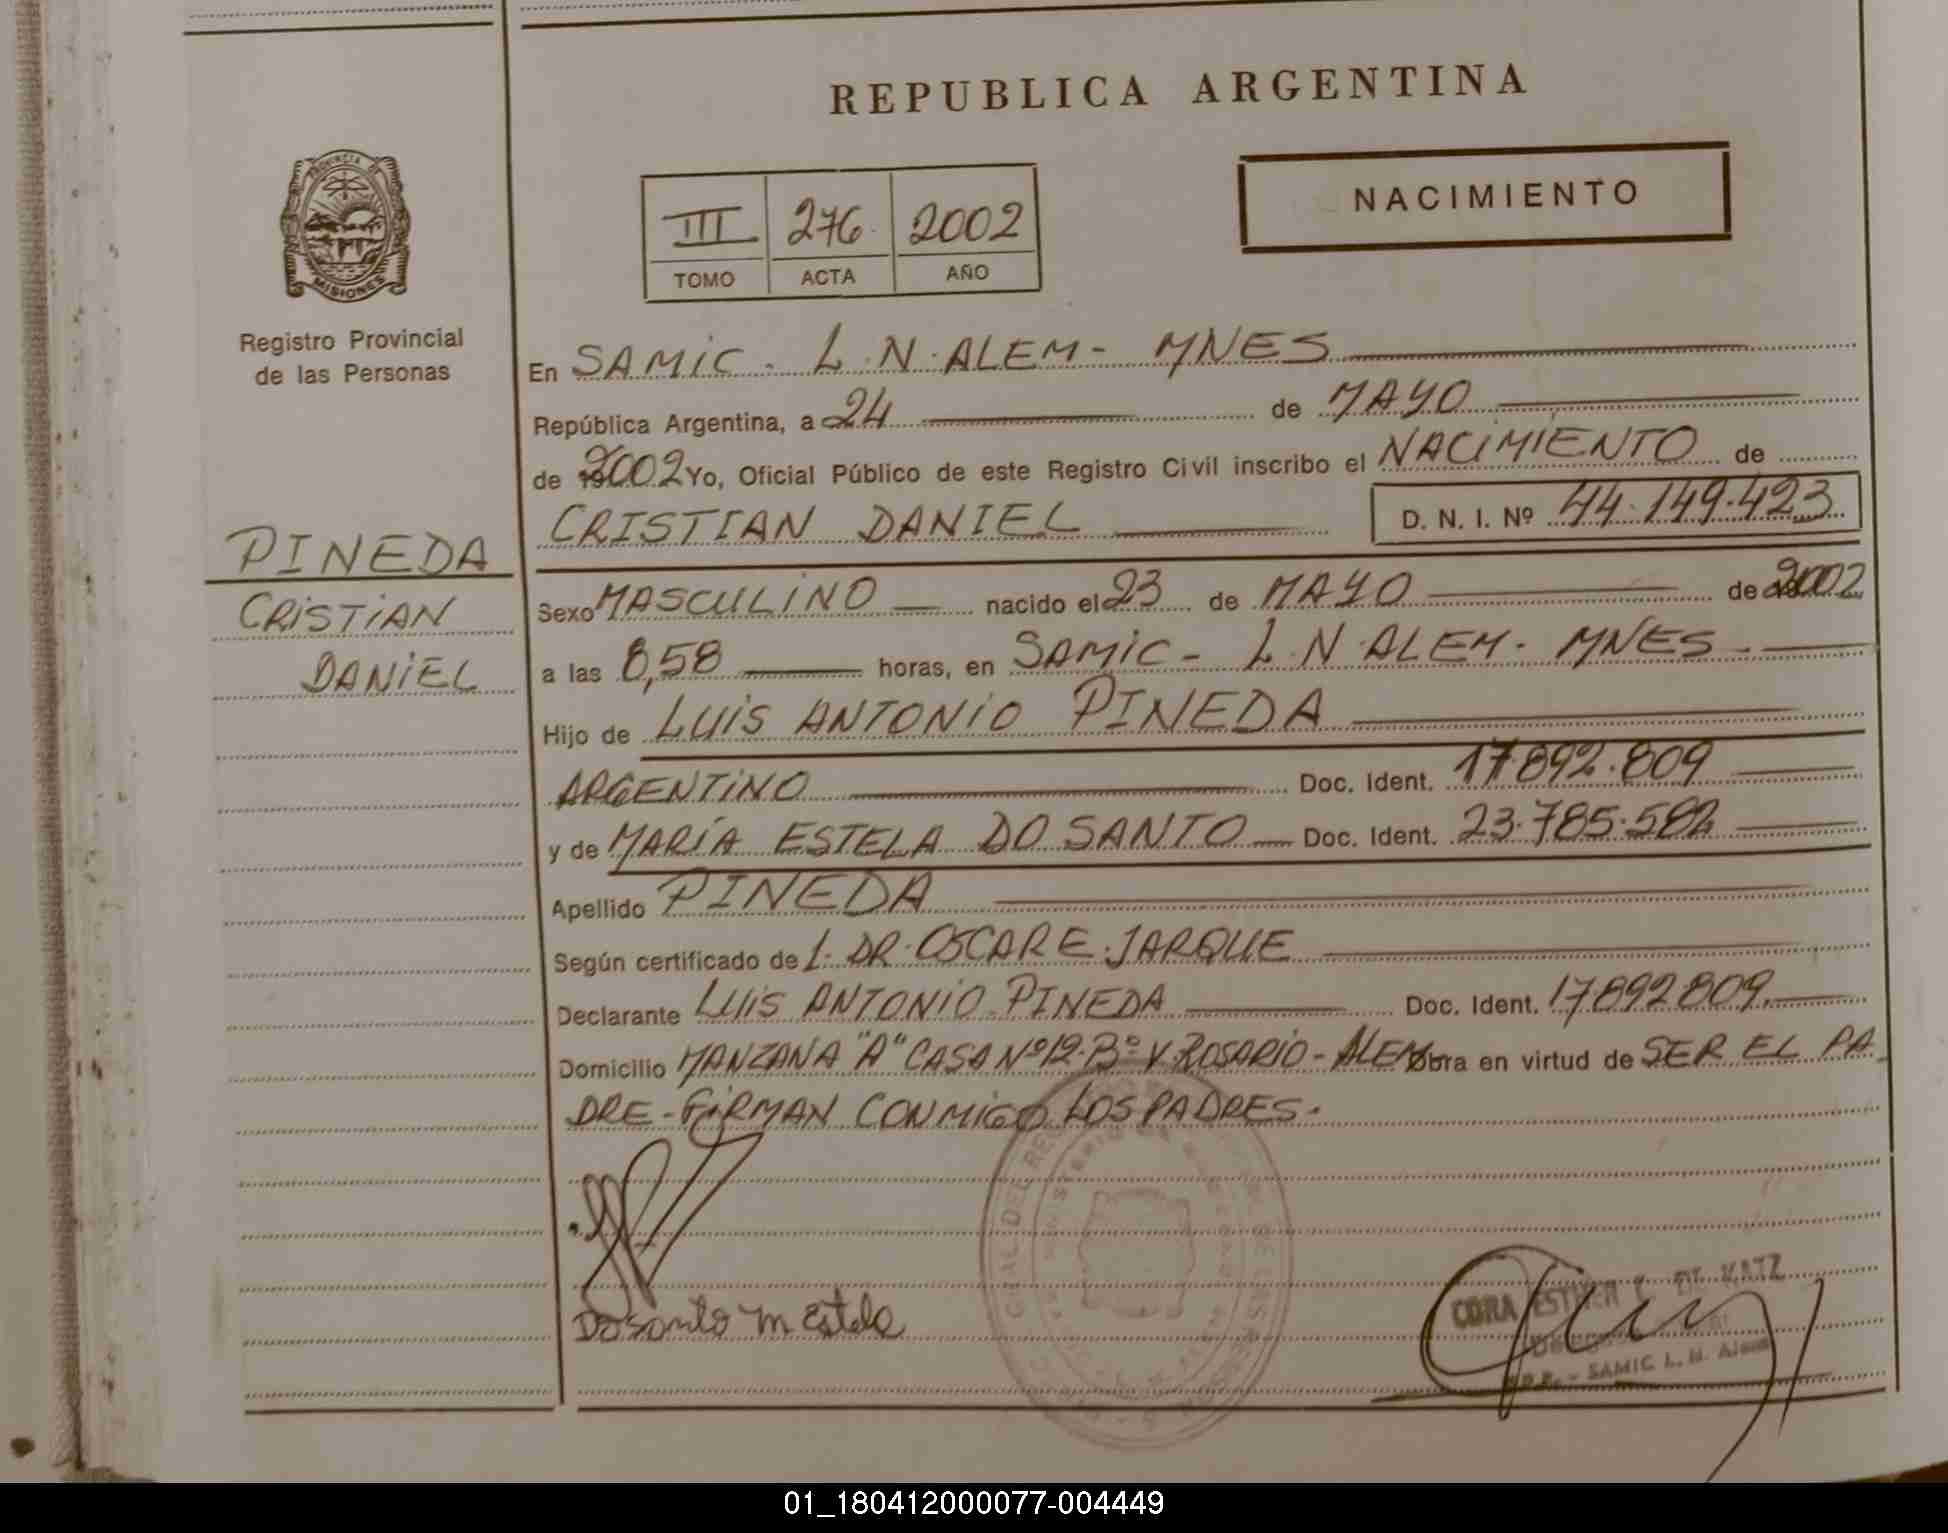 REPUBLICA ARGENTINA
NACIMIENTO
III 276 2002
TOMO ACTA AÑO
PROVINCIA DE
MISIONES
Registro Provincial
de las Personas
PINEDA
CRISTIAN
DANIEL
En SAMIC - L.N. ALEM - MNES
República Argentina, a 24 de MAYO
de 2002 Yo, Oficial Público de este Registro Civil inscribo el NACIMIENTO de
CRISTIAN DANIEL D. N. I. Nº 44.149.423
Sexo MASCULINO nacido el 23 de MAYO de 2002
a las 8,58 horas, en SAMIC - L.N. ALEM - MNES
Hijo de LUIS ANTONIO PINEDA
ARGENTINO Doc. Ident. 17.892.809
y de MARÍA ESTELA DO SANTO Doc. Ident. 23.785.584
Apellido PINEDA
Según certificado de L. DR. OSCAR E. JARQUE
Declarante LUIS ANTONIO PINEDA Doc. Ident. 17892809
Domicilio MANZANA "A" CASA Nº 12 - Bº V. ROSARIO - ALEM Obra en virtud de SER EL PA
DRE - FIRMAN CONMIGO LOS PADRES.
Dosanto M Estela
ESTHER KATZ
SAMIC L. N. Alem
01_180412000077-004449